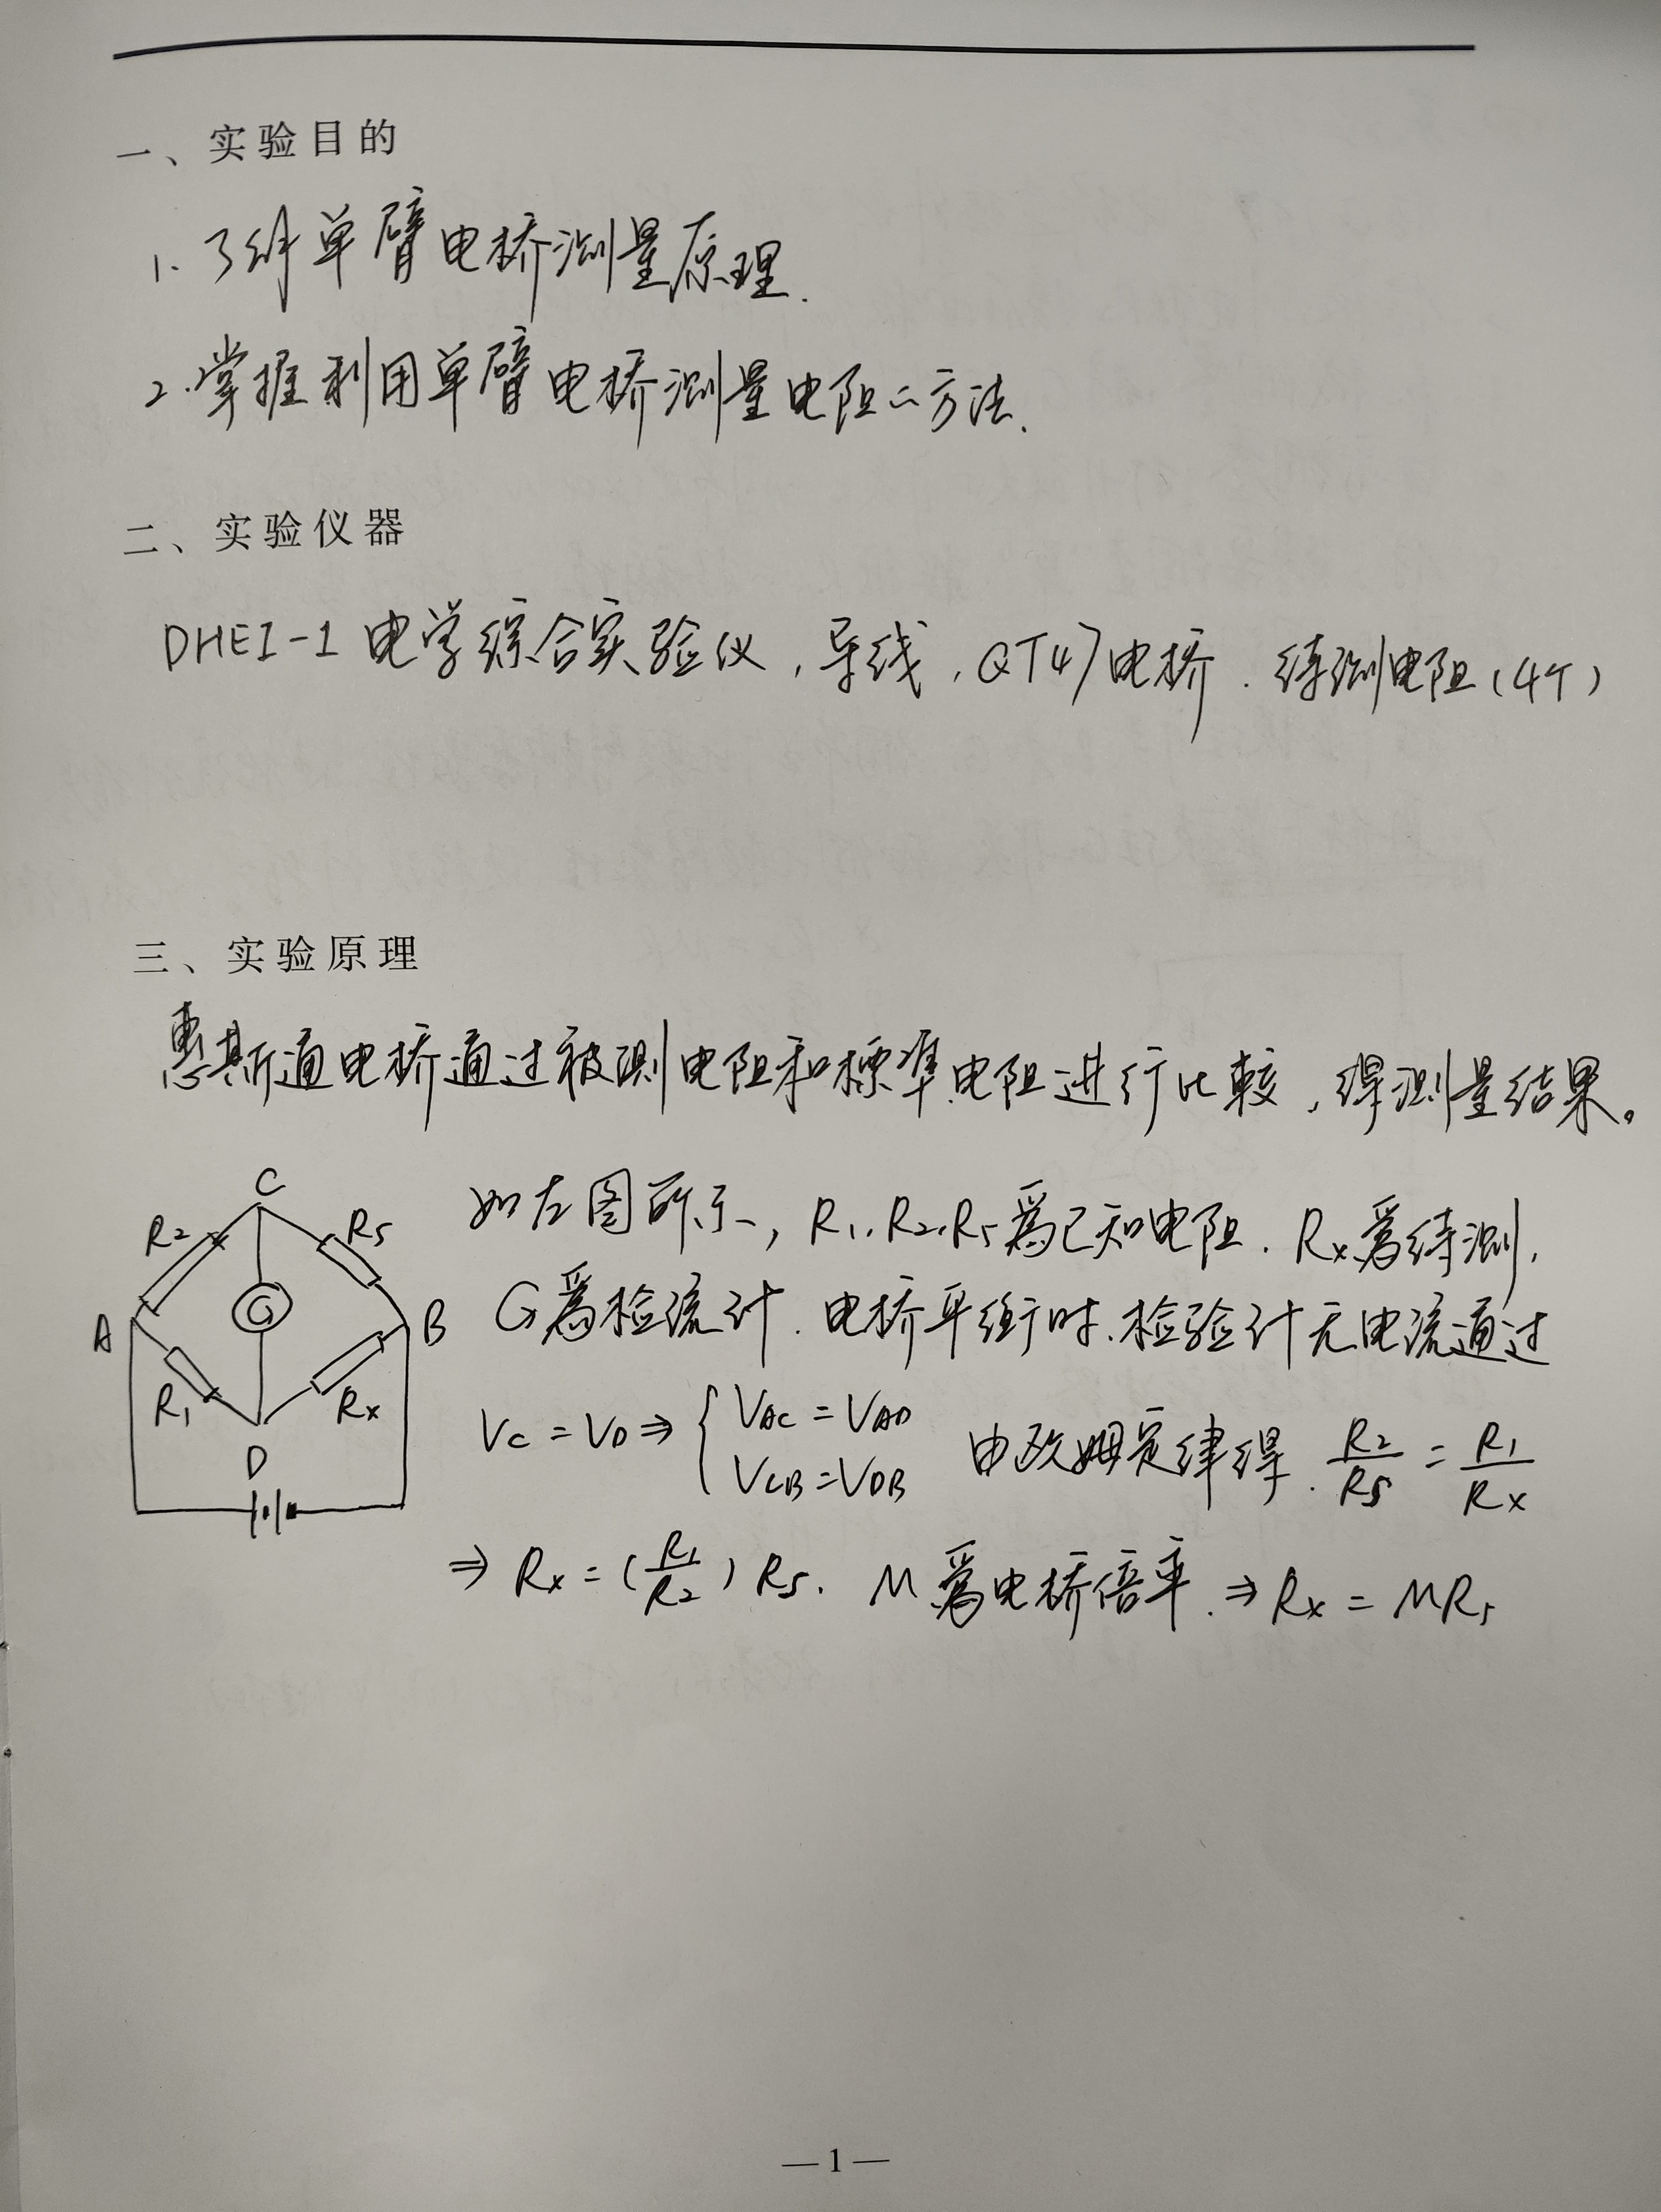 一、实验目的
1. 了解单臂电桥测量原理.
2. 掌握利用单臂电桥测量电阻的方法.
二、实验仪器
DHEI-1 电学综合实验仪, 导线, QT47电桥. 待测电阻(4个)
三、实验原理
惠斯通电桥通过被测电阻和標準电阻进行比較, 得测量结果。
如左图所示, R₁. R₂. Rs 為已知电阻. Rx為待测,
G為检流计. 电桥平衡时. 检验计无电流通过
Vc = VD ⇒ { VAC = VAD
VCB = VDB 由欧姆定律得. R₂/Rs = R₁/Rx
⇒ Rx = (R₁/R₂) Rs. M 為电桥倍率. ⇒ Rx = MRs
C
R₂
Rs
G
A
B
R₁
Rx
D
— 1 —